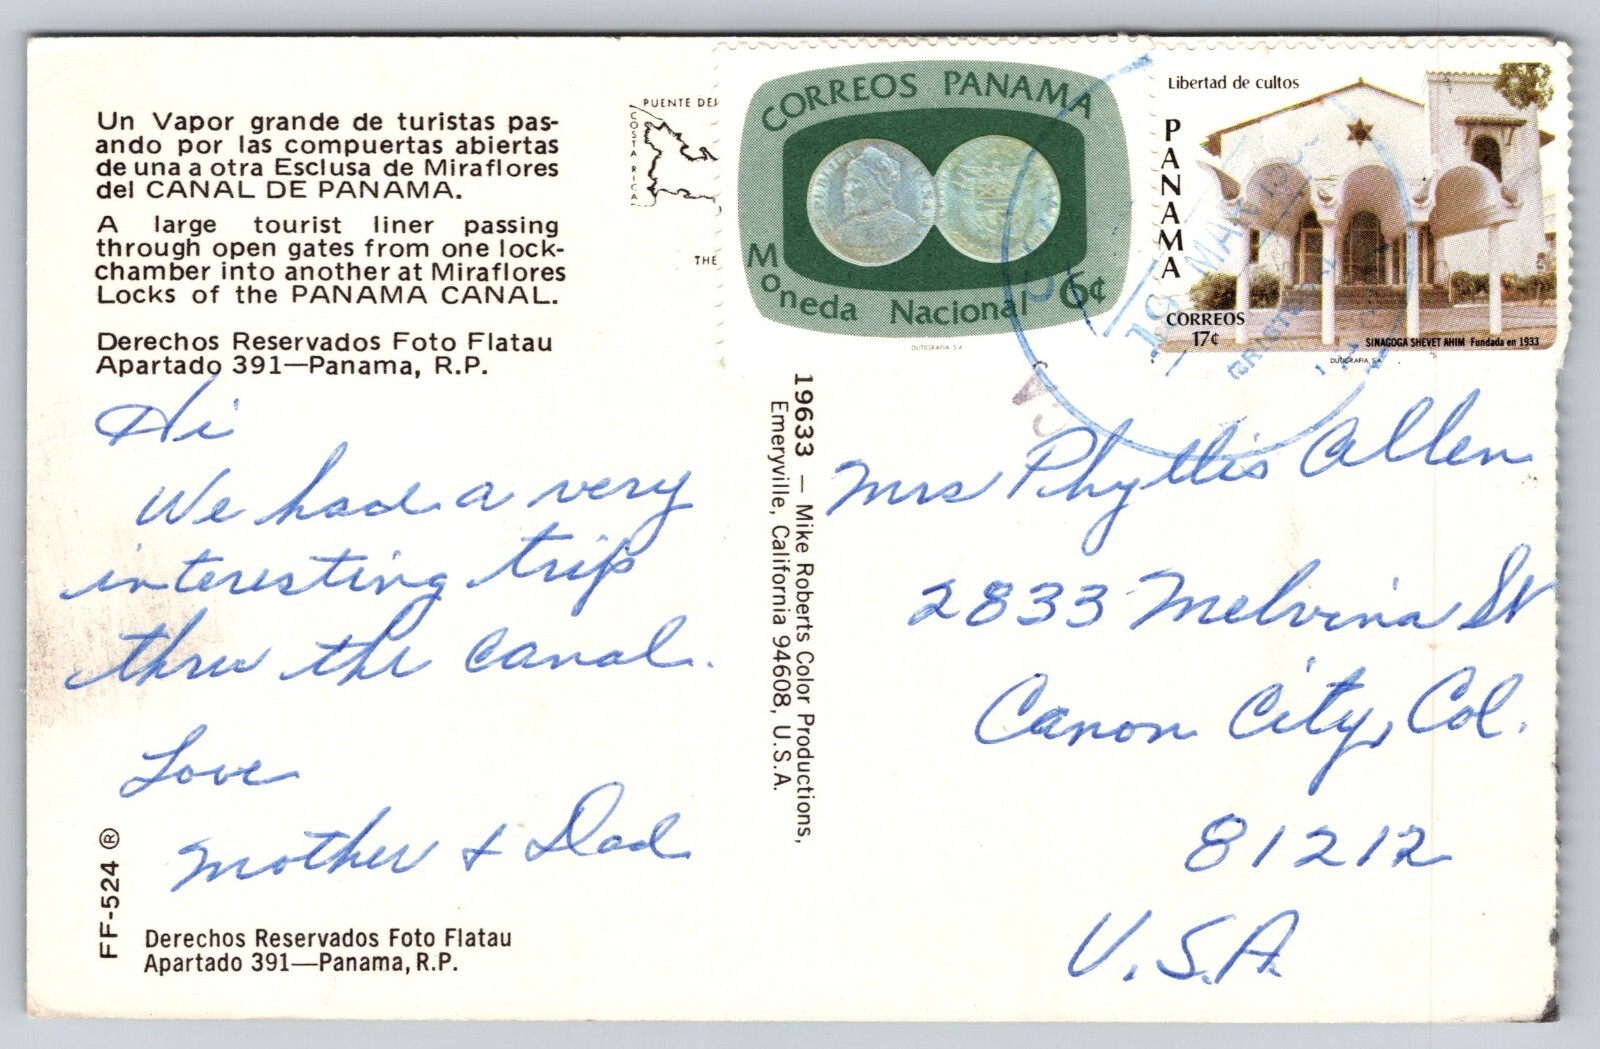 Un Vapor grande de turistas pas-
ando por las compuertas abiertas
de una a otra Esclusa de Miraflores
del CANAL DE PANAMA.
A large tourist liner passing
through open gates from one lock-
chamber into another at Miraflores
Locks of the PANAMA CANAL.
Derechos Reservados Foto Flatau
Apartado 391—Panama, R.P.
Hi
We had a very
interesting trip
thru the canal.
Love
Mother & Dad
FF-524 ®
Derechos Reservados Foto Flatau
Apartado 391—Panama, R.P.
PUENTE DEL
COSTA RICA
THE
19633 — Mike Roberts Color Productions,
Emeryville, California 94608, U.S.A.
CORREOS PANAMA
Moneda Nacional 6¢
DUTIGRAFIA S.A.
Libertad de cultos
PANAMA
CORREOS
17¢
SINAGOGA SHEVET AHIM Fundada en 1933
DUTIGRAFIA S.A.
MAR
Mrs Phyllis Allen
2833 Melvina St
Canon City, Col.
81212
U.S.A.